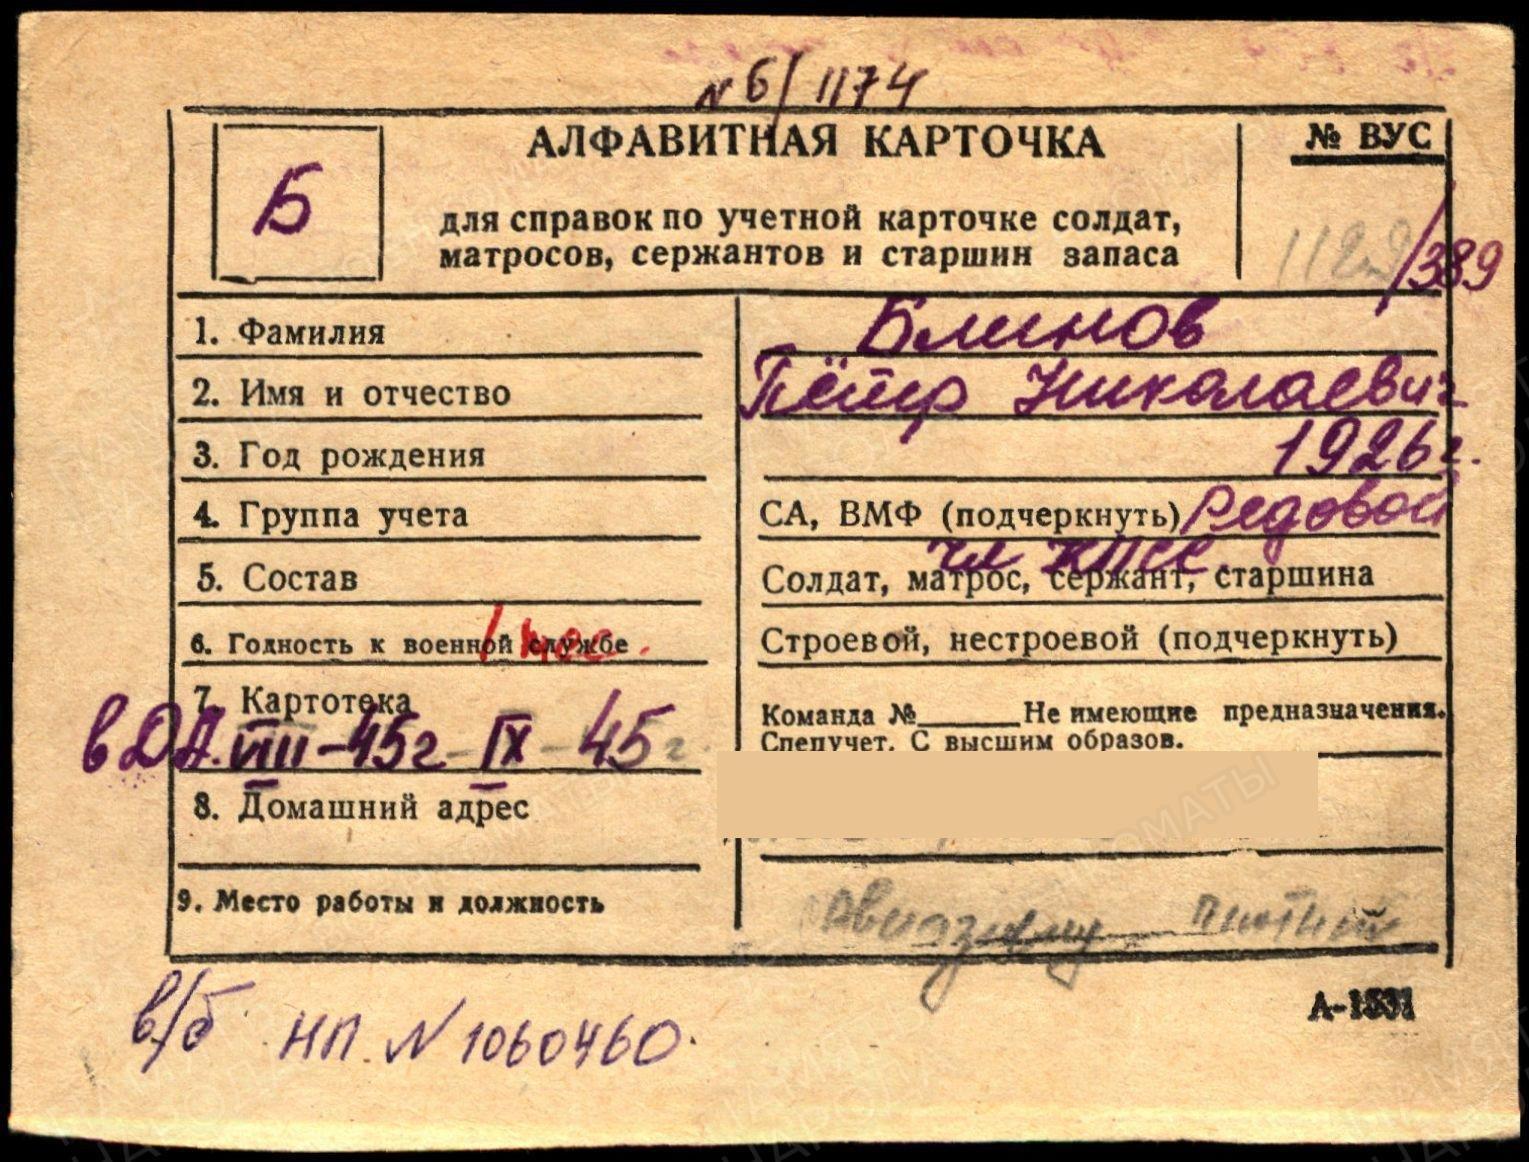 № Б/1174
АЛФАВИТНАЯ КАРТОЧКА
№ ВУС
Б
для справок по учетной карточке солдат,
матросов, сержантов и старшин запаса
/389
1. Фамилия Блинов
2. Имя и отчество Пётр Николаевич
3. Год рождения 1926г.
4. Группа учета СА, ВМФ (подчеркнуть) Редовой
чл КПСС.
5. Состав Солдат, матрос, сержант, старшина
6. Годность к военной службе Строевой, нестроевой (подчеркнуть)
7. Картотека Команда №______Не имеющие предназначения.
в ДА. VIII-45г-IX-45г. Спецучет. С высшим образов.
8. Домашний адрес
9. Место работы и должность
А-1531
в/б НП. N 1060460.